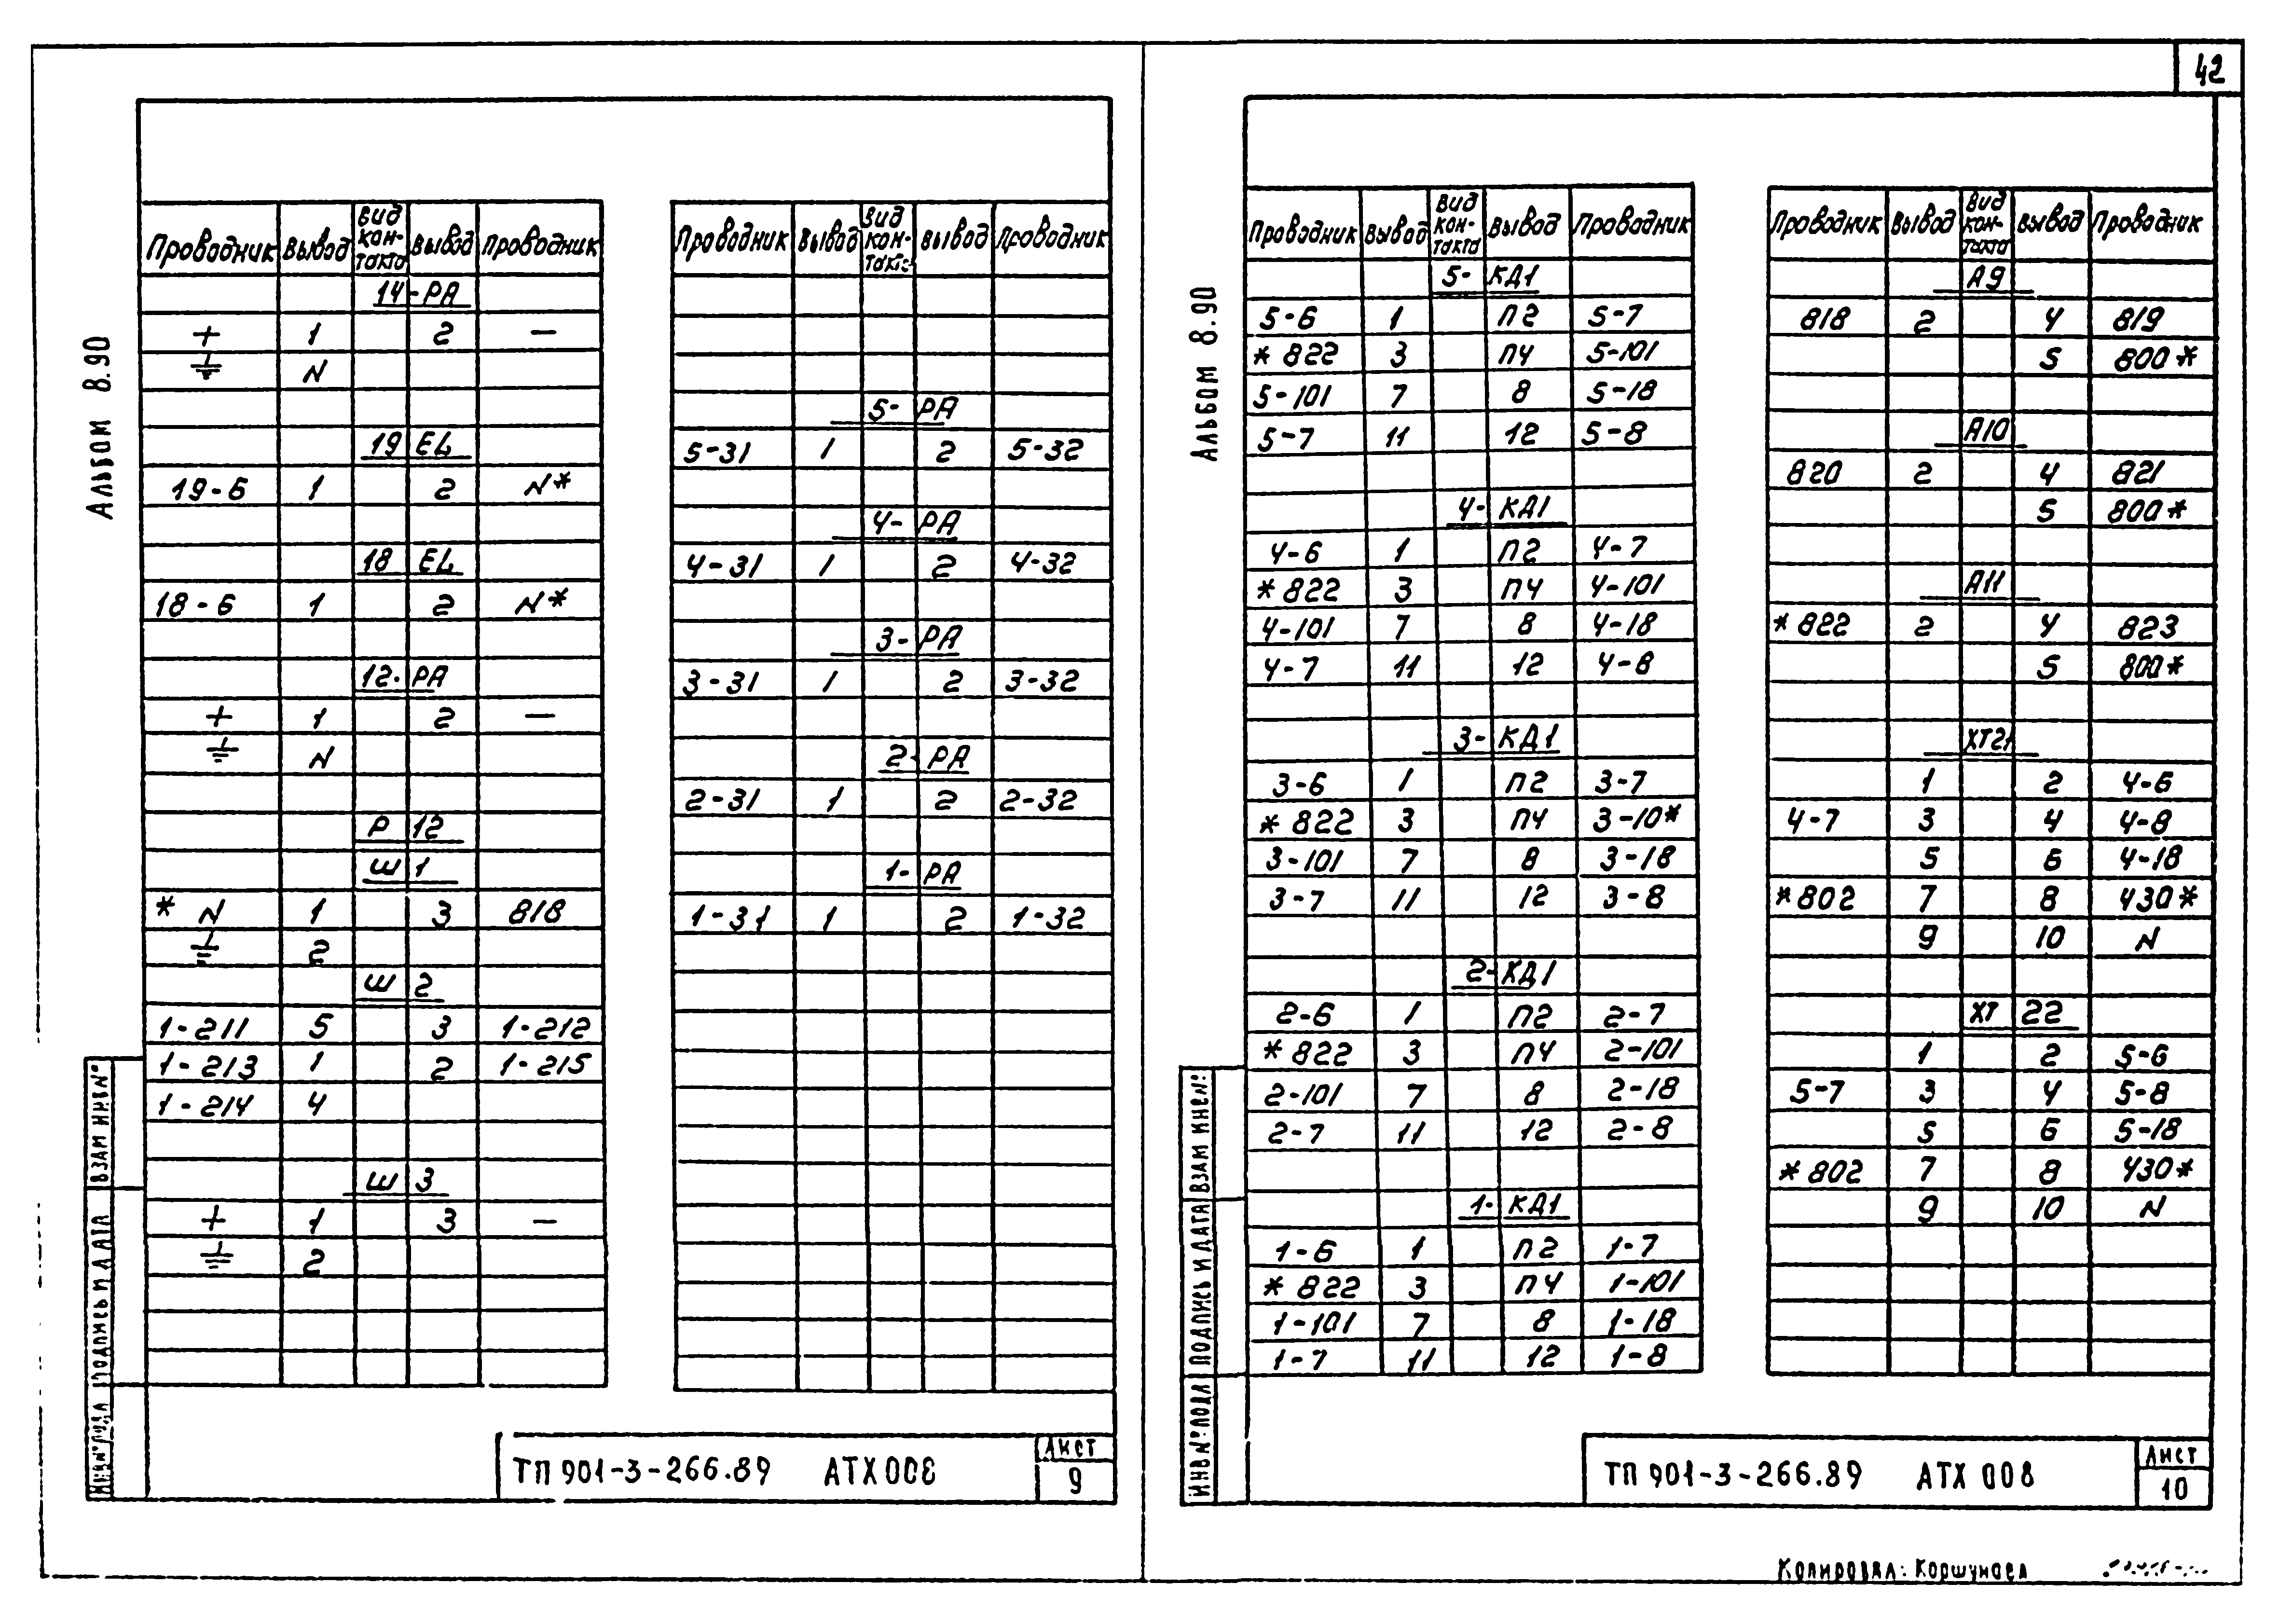 42
АЛЬБОМ 8.90
Проводник Вывод Вид кон-такта Вывод Проводник
14-РА
+ 1 2 —
⏚ N
19 EL
19-6 1 2 N*
18 EL
18-6 1 2 N*
12-РА
+ 1 2 —
⏚ N
Р 12
Ш 1
* N 1 3 818
⏚ 2
Ш 2
1-211 5 3 1-212
1-213 1 2 1-215
1-214 4
Ш 3
+ 1 3 —
⏚ 2
Проводник Вывод Вид кон-такта Вывод Проводник
5-РА
5-31 1 2 5-32
4-РА
4-31 1 2 4-32
3-РА
3-31 1 2 3-32
2-РА
2-31 1 2 2-32
1-РА
1-31 1 2 1-32
ИНВ№ПОДЛ ПОДПИСЬ И ДАТА ВЗАМ ИНВ№
ТП 901-3-266.89 АТХ008
Лист
9
АЛЬБОМ 8.90
Проводник Вывод Вид кон-такта Вывод Проводник
5-КД1
5-6 1 П2 5-7
* 822 3 П4 5-101
5-101 7 8 5-18
5-7 11 12 5-8
4-КД1
4-6 1 П2 4-7
* 822 3 П4 4-101
4-101 7 8 4-18
4-7 11 12 4-8
3-КД1
3-6 1 П2 3-7
* 822 3 П4 3-10*
3-101 7 8 3-18
3-7 11 12 3-8
2-КД1
2-6 1 П2 2-7
* 822 3 П4 2-101
2-101 7 8 2-18
2-7 11 12 2-8
1-КД1
1-6 1 П2 1-7
* 822 3 П4 1-101
1-101 7 8 1-18
1-7 11 12 1-8
Проводник Вывод Вид кон-такта Вывод Проводник
А9
818 2 4 819
5 800*
А10
820 2 4 821
5 800*
А11
*822 2 4 823
5 800*
ХТ21
1 2 4-6
4-7 3 4 4-8
5 6 4-18
*802 7 8 430*
9 10 N
ХТ 22
1 2 5-6
5-7 3 4 5-8
5 6 5-18
*802 7 8 430*
9 10 N
ИНВ№ПОДЛ ПОДПИСЬ И ДАТА ВЗАМ ИНВ№
ТП 901-3-266.89 АТХ 008
Лист
10
Копировал: